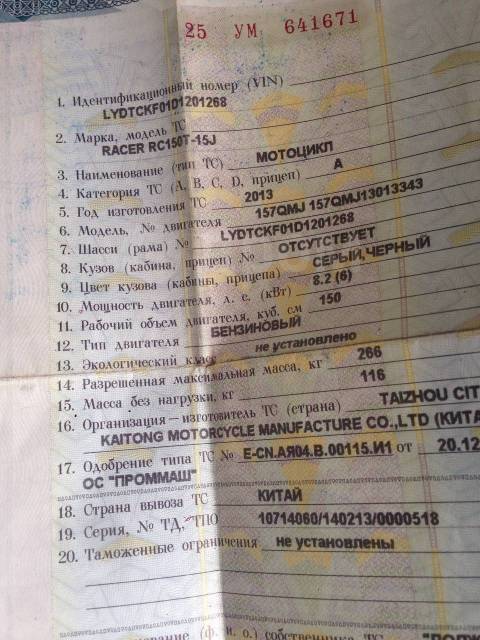 25 УМ 641671
1. Идентификационный номер (VIN)
LYDTCKF01D1201268
2. Марка, модель ТС
RACER RC150T-15J
3. Наименование (тип ТС) МОТОЦИКЛ
4. Категория ТС (A, B, C, D, прицеп) A
5. Год изготовления ТС 2013
6. Модель, № двигателя 157QMJ 157QMJ13013343
7. Шасси (рама) № LYDTCKF01D1201268
8. Кузов (кабина, прицеп) № ОТСУТСТВУЕТ
9. Цвет кузова (кабины, прицепа) СЕРЫЙ,ЧЕРНЫЙ
10. Мощность двигателя, л. с. (кВт) 8.2 (6)
11. Рабочий объем двигателя, куб. см 150
12. Тип двигателя БЕНЗИНОВЫЙ
13. Экологический класс не установлено
14. Разрешенная максимальная масса, кг 266
15. Масса без нагрузки, кг 116
16. Организация—изготовитель ТС (страна) TAIZHOU CIT
KAITONG MOTORCYCLE MANUFACTURE CO.,LTD (КИТА
17. Одобрение типа ТС № E-CN.АЯ04.В.00115.И1 от 20.12
ОС "ПРОММАШ"
18. Страна вывоза ТС КИТАЙ
19. Серия, № ТД, ТПО 10714060/140213/0000518
20. Таможенные ограничения не установлены
(ф. и. о.) собственника ТС